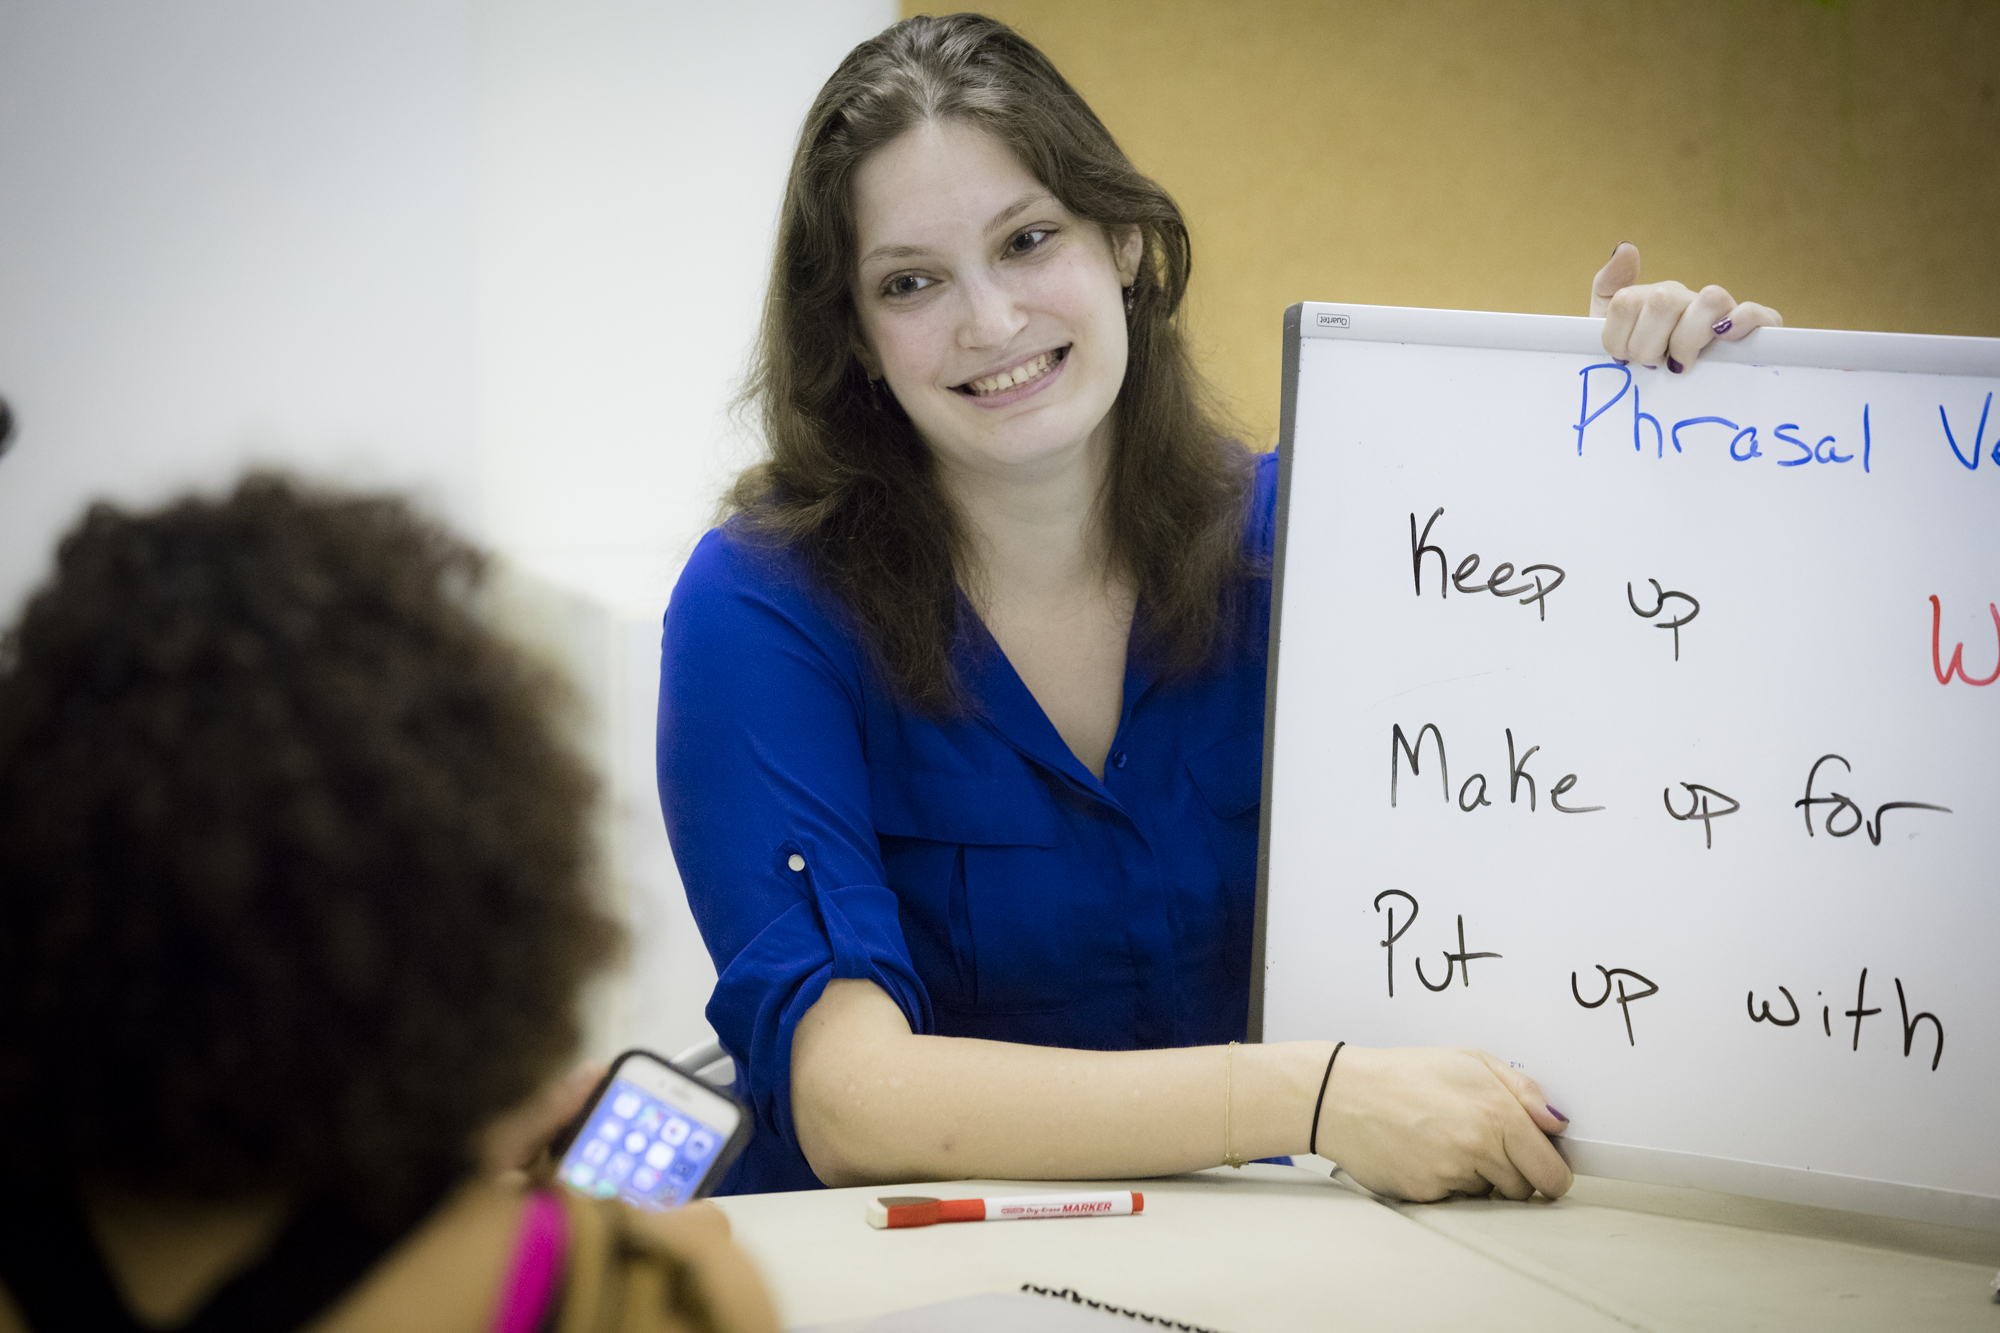 Quartet
Phrasal Ve
Keep up W
Make up for
Put up with
Dry-Erase MARKER